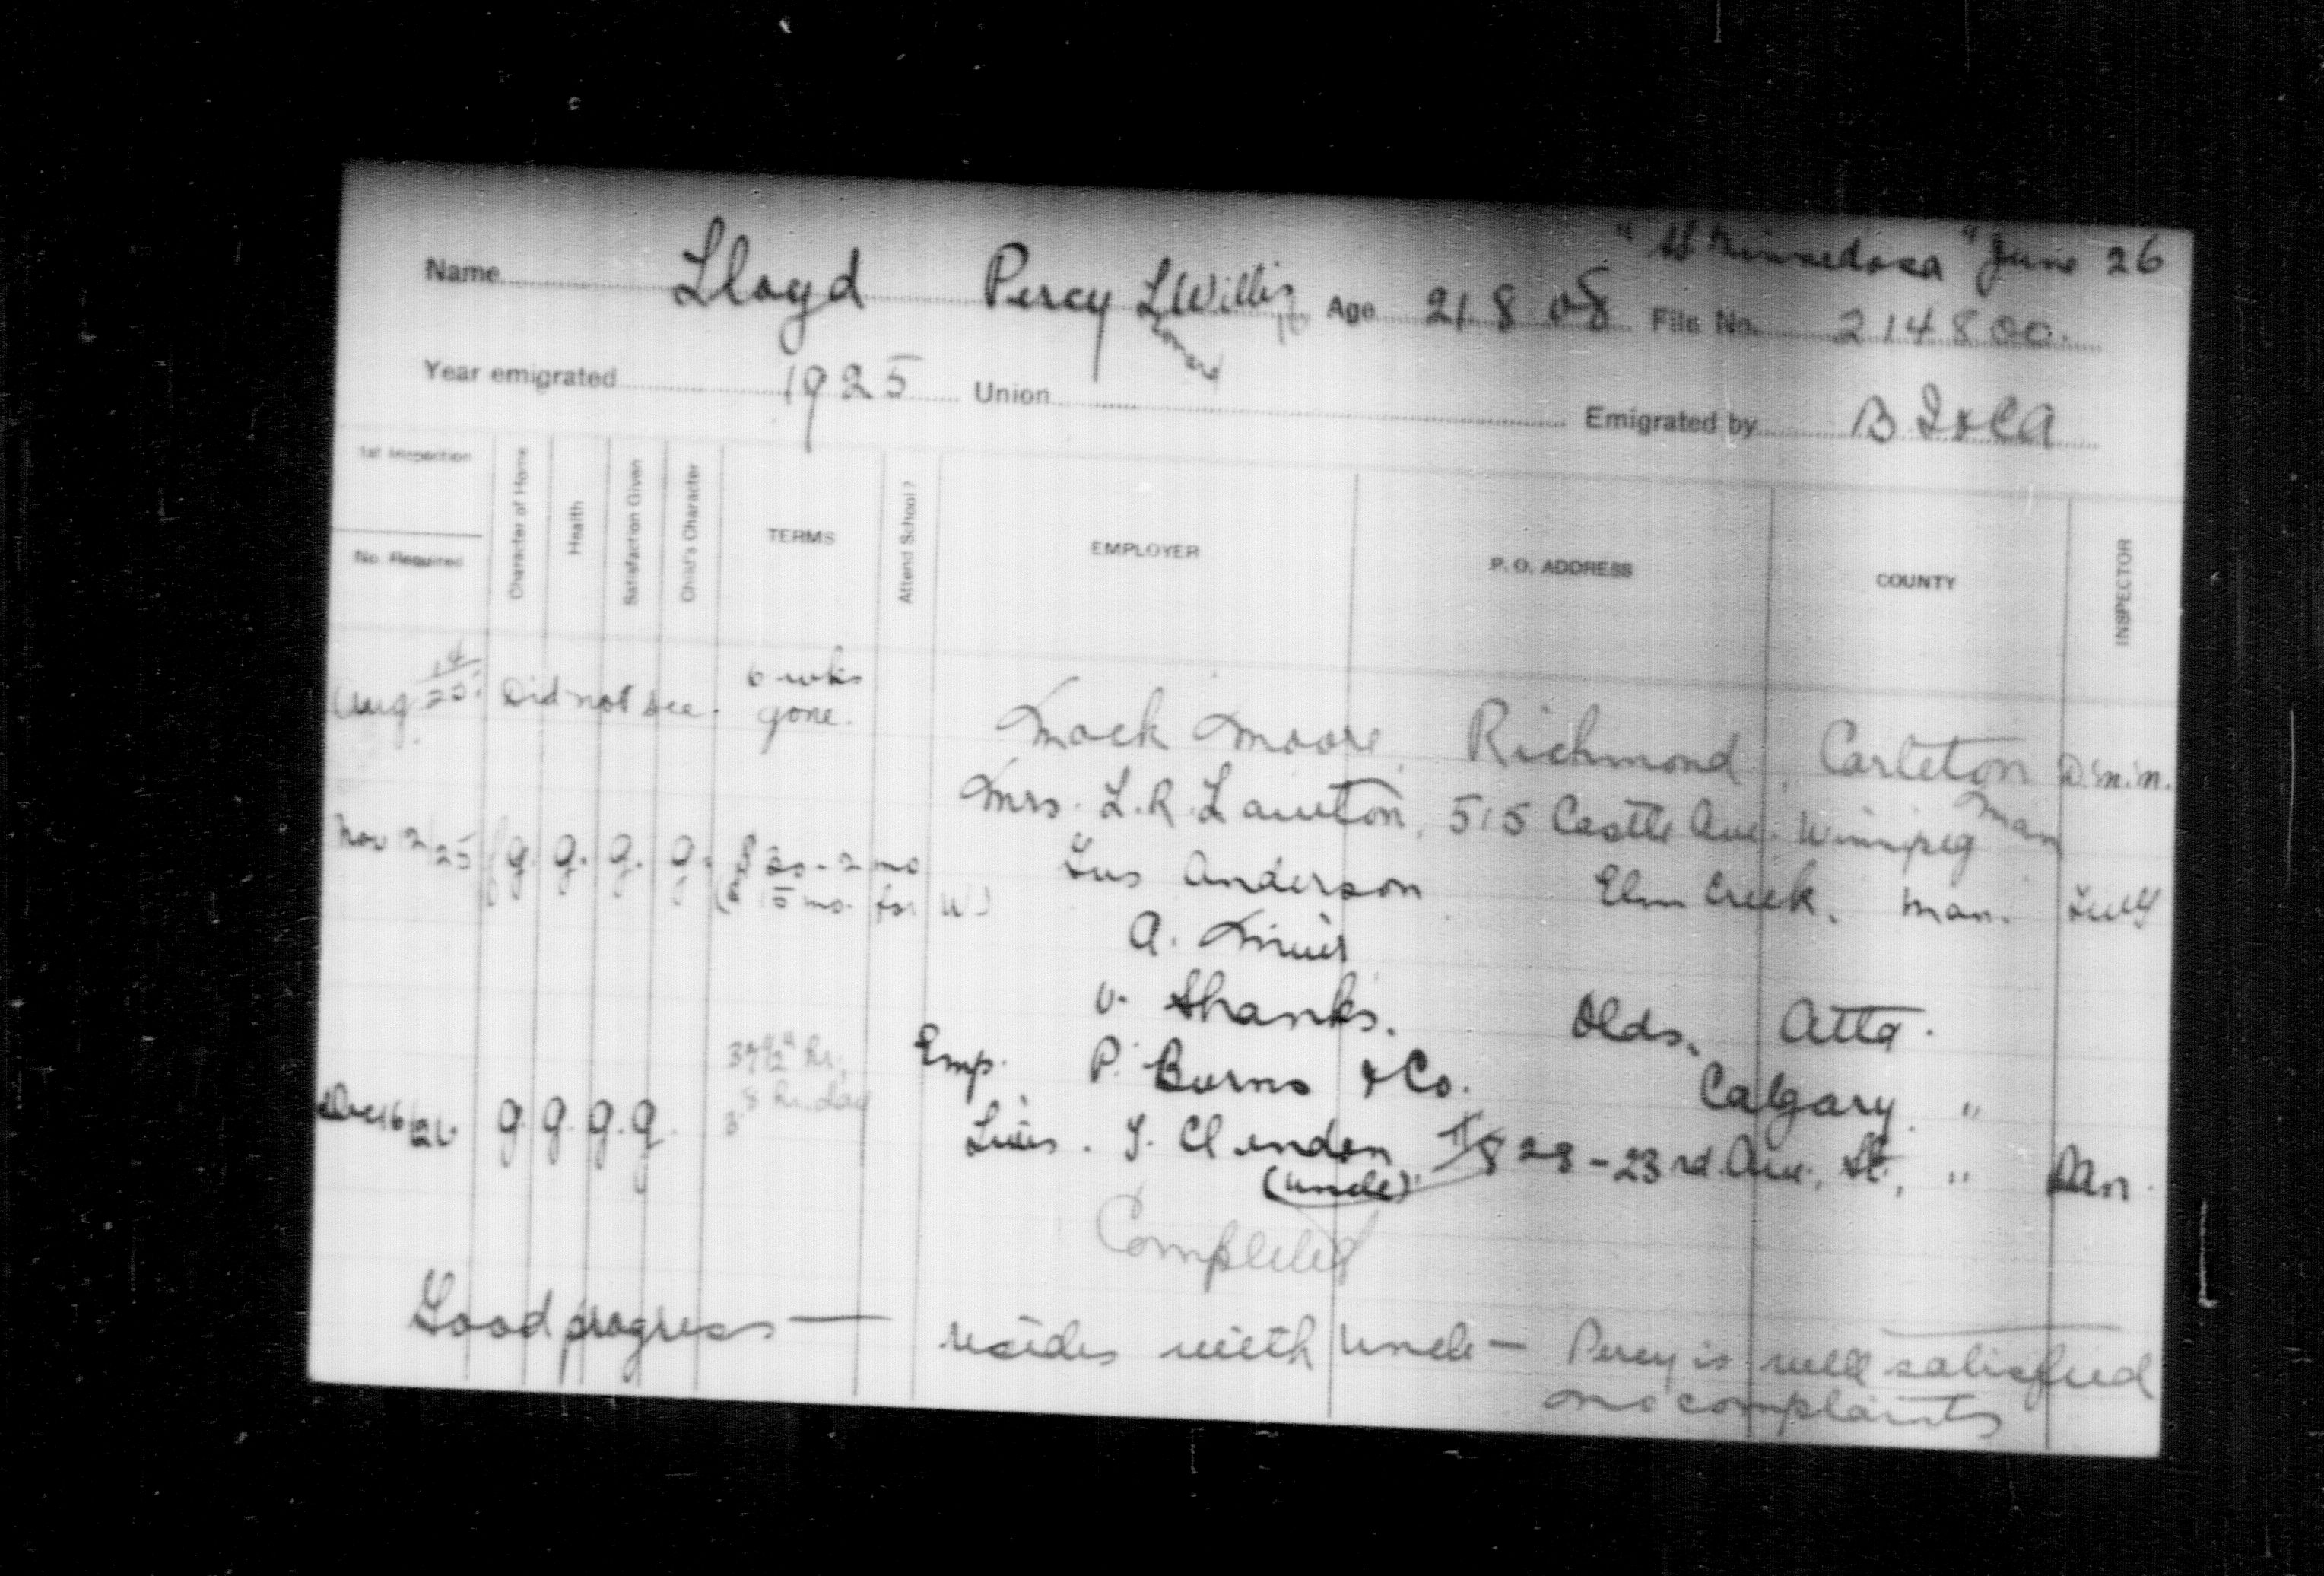 "Minnedosa" June 26
Name Lloyd Percy L Willis Age 21 8 08 File No. 214800.
Leonard
Year emigrated 1925 Union Emigrated by B I & C A
1st Inspection
No. Required
Character of Home
Health
Satisfaction Given
Child's Character
TERMS
Attend School?
EMPLOYER
P. O. ADDRESS
COUNTY
INSPECTOR
Aug 14/25. Did not see. 6 wks gone.
Mack Moore, Richmond, Carleton D.M.M.
Mrs. L. R. Lawton, 515 Castle Ave. Winnipeg Man
Nov 2/25 g. g. g. g. 2 mo Gus Anderson Elm Creek. Man.
15 mo. for W)
A. Muir
V. Shanks. Olds, Alta.
37½ hr. Emp. P. Burns & Co. Calgary "
8 hr. day
Dec 16/26 g. g. g. g. Lives. Clendon 828-23rd Ave. "
(uncle)
Completed
Good progress — resides with uncle — Percy is well satisfied
no complaints